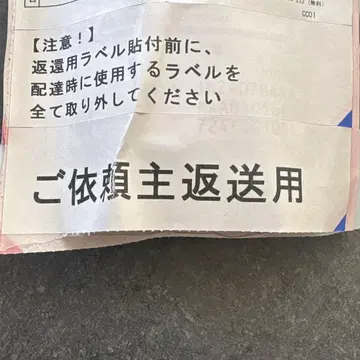 (無料)
CC01
【注意！】
返還用ラベル貼付前に、
配達時に使用するラベルを
全て取り外してください
ご依頼主返送用